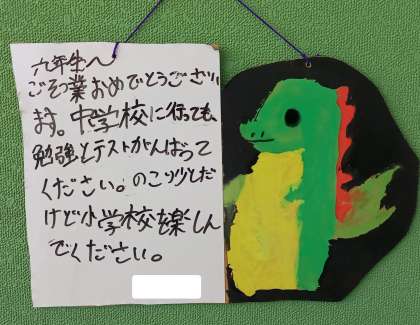 六年生へ
ごそつ業おめでとうござい
ます。中学校に行っても、
勉強とテストがんばって
ください。のこり少しだ
けど小学校を楽しん
でください。